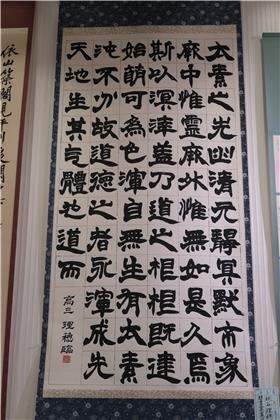 太素之先幽清元靜冥默象
厥中惟靈厥外惟無如是久焉
斯以溟涬蓋乃道之根根既建
始萌可為色渾自無生有太素
沌不分故道德之者永渾成先
天地生其气體也道而
高三 理穂臨
依山築閣見平川夜闌